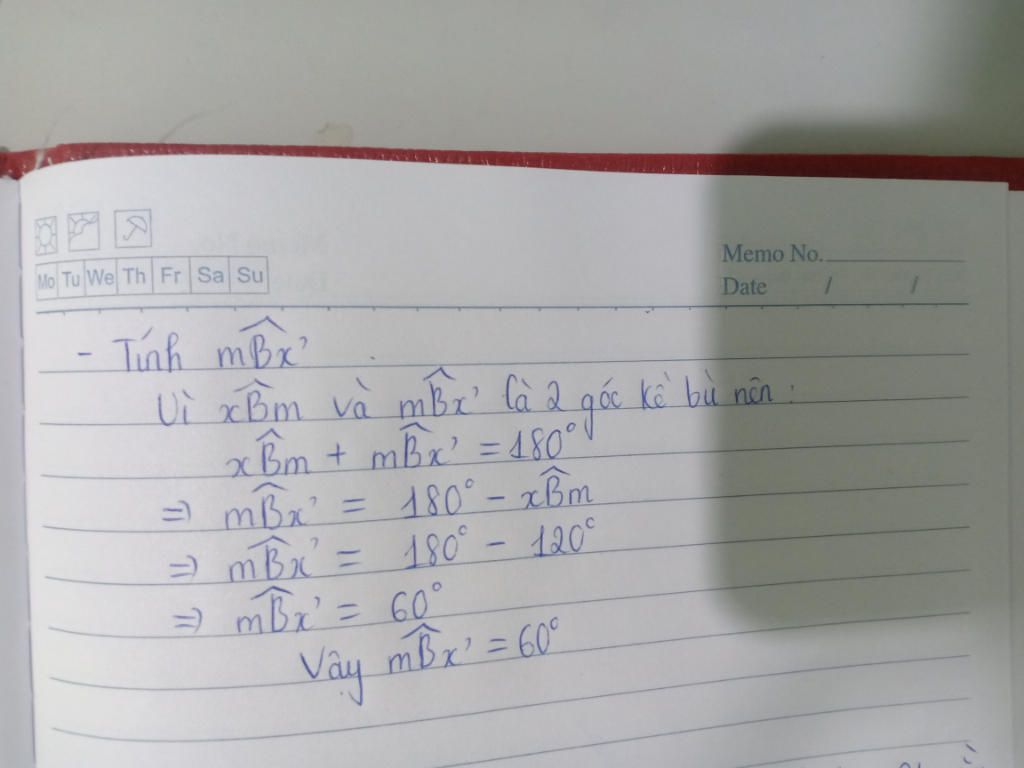 Memo No.
Mo Tu We Th Fr Sa Su
Date / /
- Tính mB̂x'
Vì xB̂m và mB̂x' là 2 góc kề bù nên :
xB̂m + mB̂x' = 180°
=> mB̂x' = 180° - xB̂m
=> mB̂x' = 180° - 120°
=> mB̂x' = 60°
Vậy mB̂x' = 60°